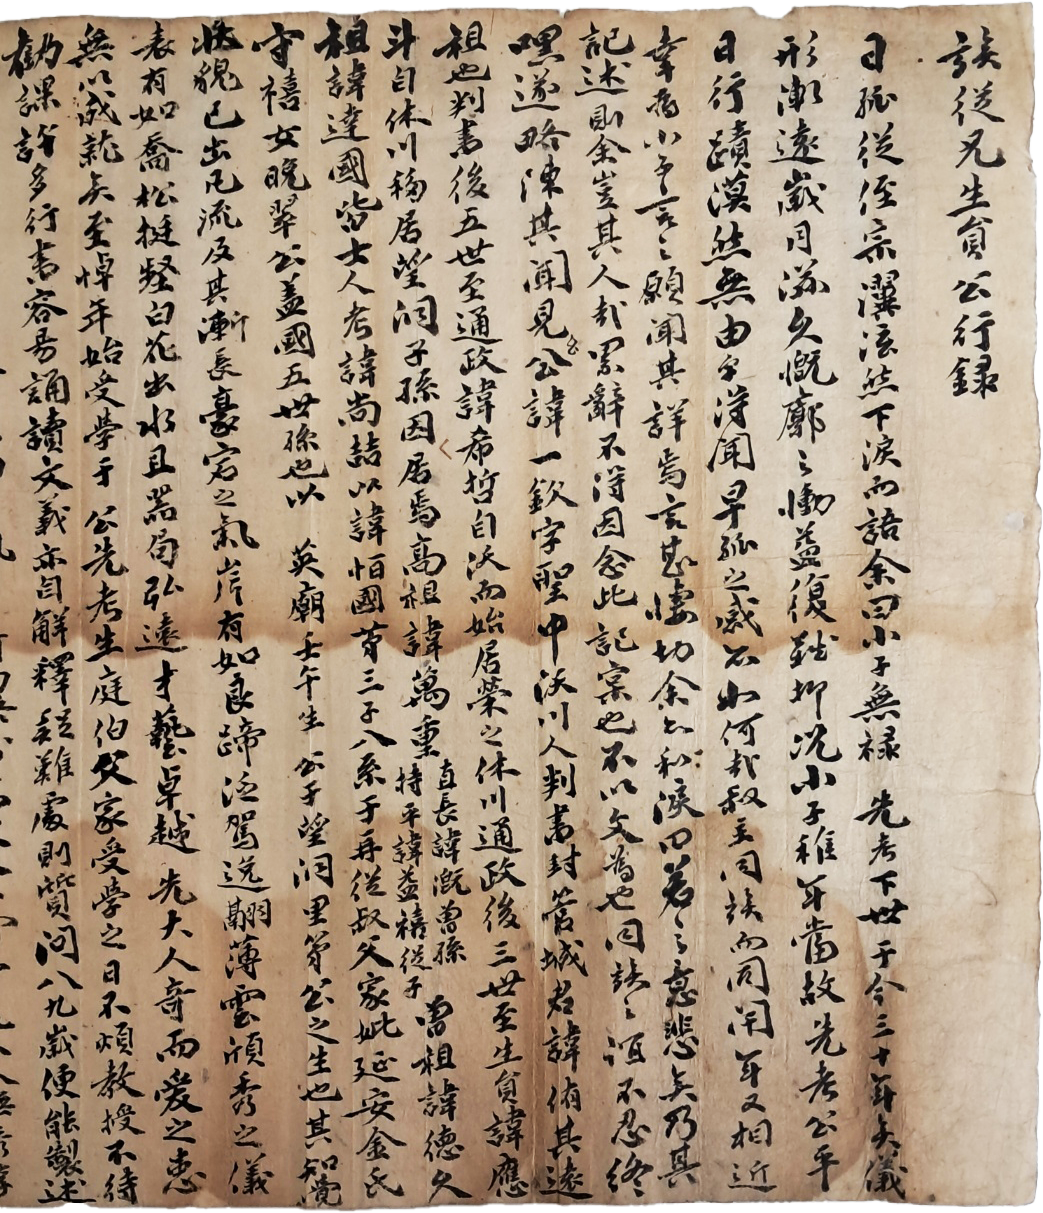 族從兄生員公行錄
日孤從侄宗瀷泫然下淚而語余曰小子無祿 先考下世于今三十年矣儀
形漸遠歲月滋久慨廓之慟益復難抑況小子稚年當故先考公平
日行蹟漠然無由分得聞早孤之感不如何哉叙主同族而同閈年又相近
幸爲小子言之願聞其詳焉言甚悽切余亦和淚曰若之意悲矣乃其
記述則余豈其人哉累辭不得因念此記宲也不以文爲也同族之誼不忍終
嘿遂略陳其聞見公諱一欽字聖中沃川人判書封管城君諱侑其遠
祖也判書後五世至通政諱希哲自沃而始居榮之休川通政後三世至生員諱應
斗自休川移居望洞子孫因居焉高祖諱萬重直長諱漑曾孫持平諱益禧從子 曾祖諱德久
祖諱達國皆士人考諱尚喆以諱怕國第三子入系于再從叔父家妣延安金氏
守禧女晚翠公盖國五世孫也以 英廟壬午生公于望洞里第公之生也其知覺
狀貌已出凡流及其漸長豪宕之氣岸有如良蹄泛駕逸翮薄雲頎秀之儀
表有如喬松挺壑白花出水且器局弘遠才藝卓越 先大人奇而爱之恚
無以成就矣至悼年始受學于 公先考生庭伯父家受學之日不煩教授不待
勸課許多行書容易誦讀文義亦自解釋疑難處則質問八九歲便能製述